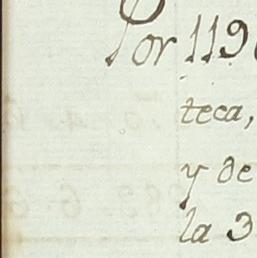 Por 119
teca,
y de
la 3